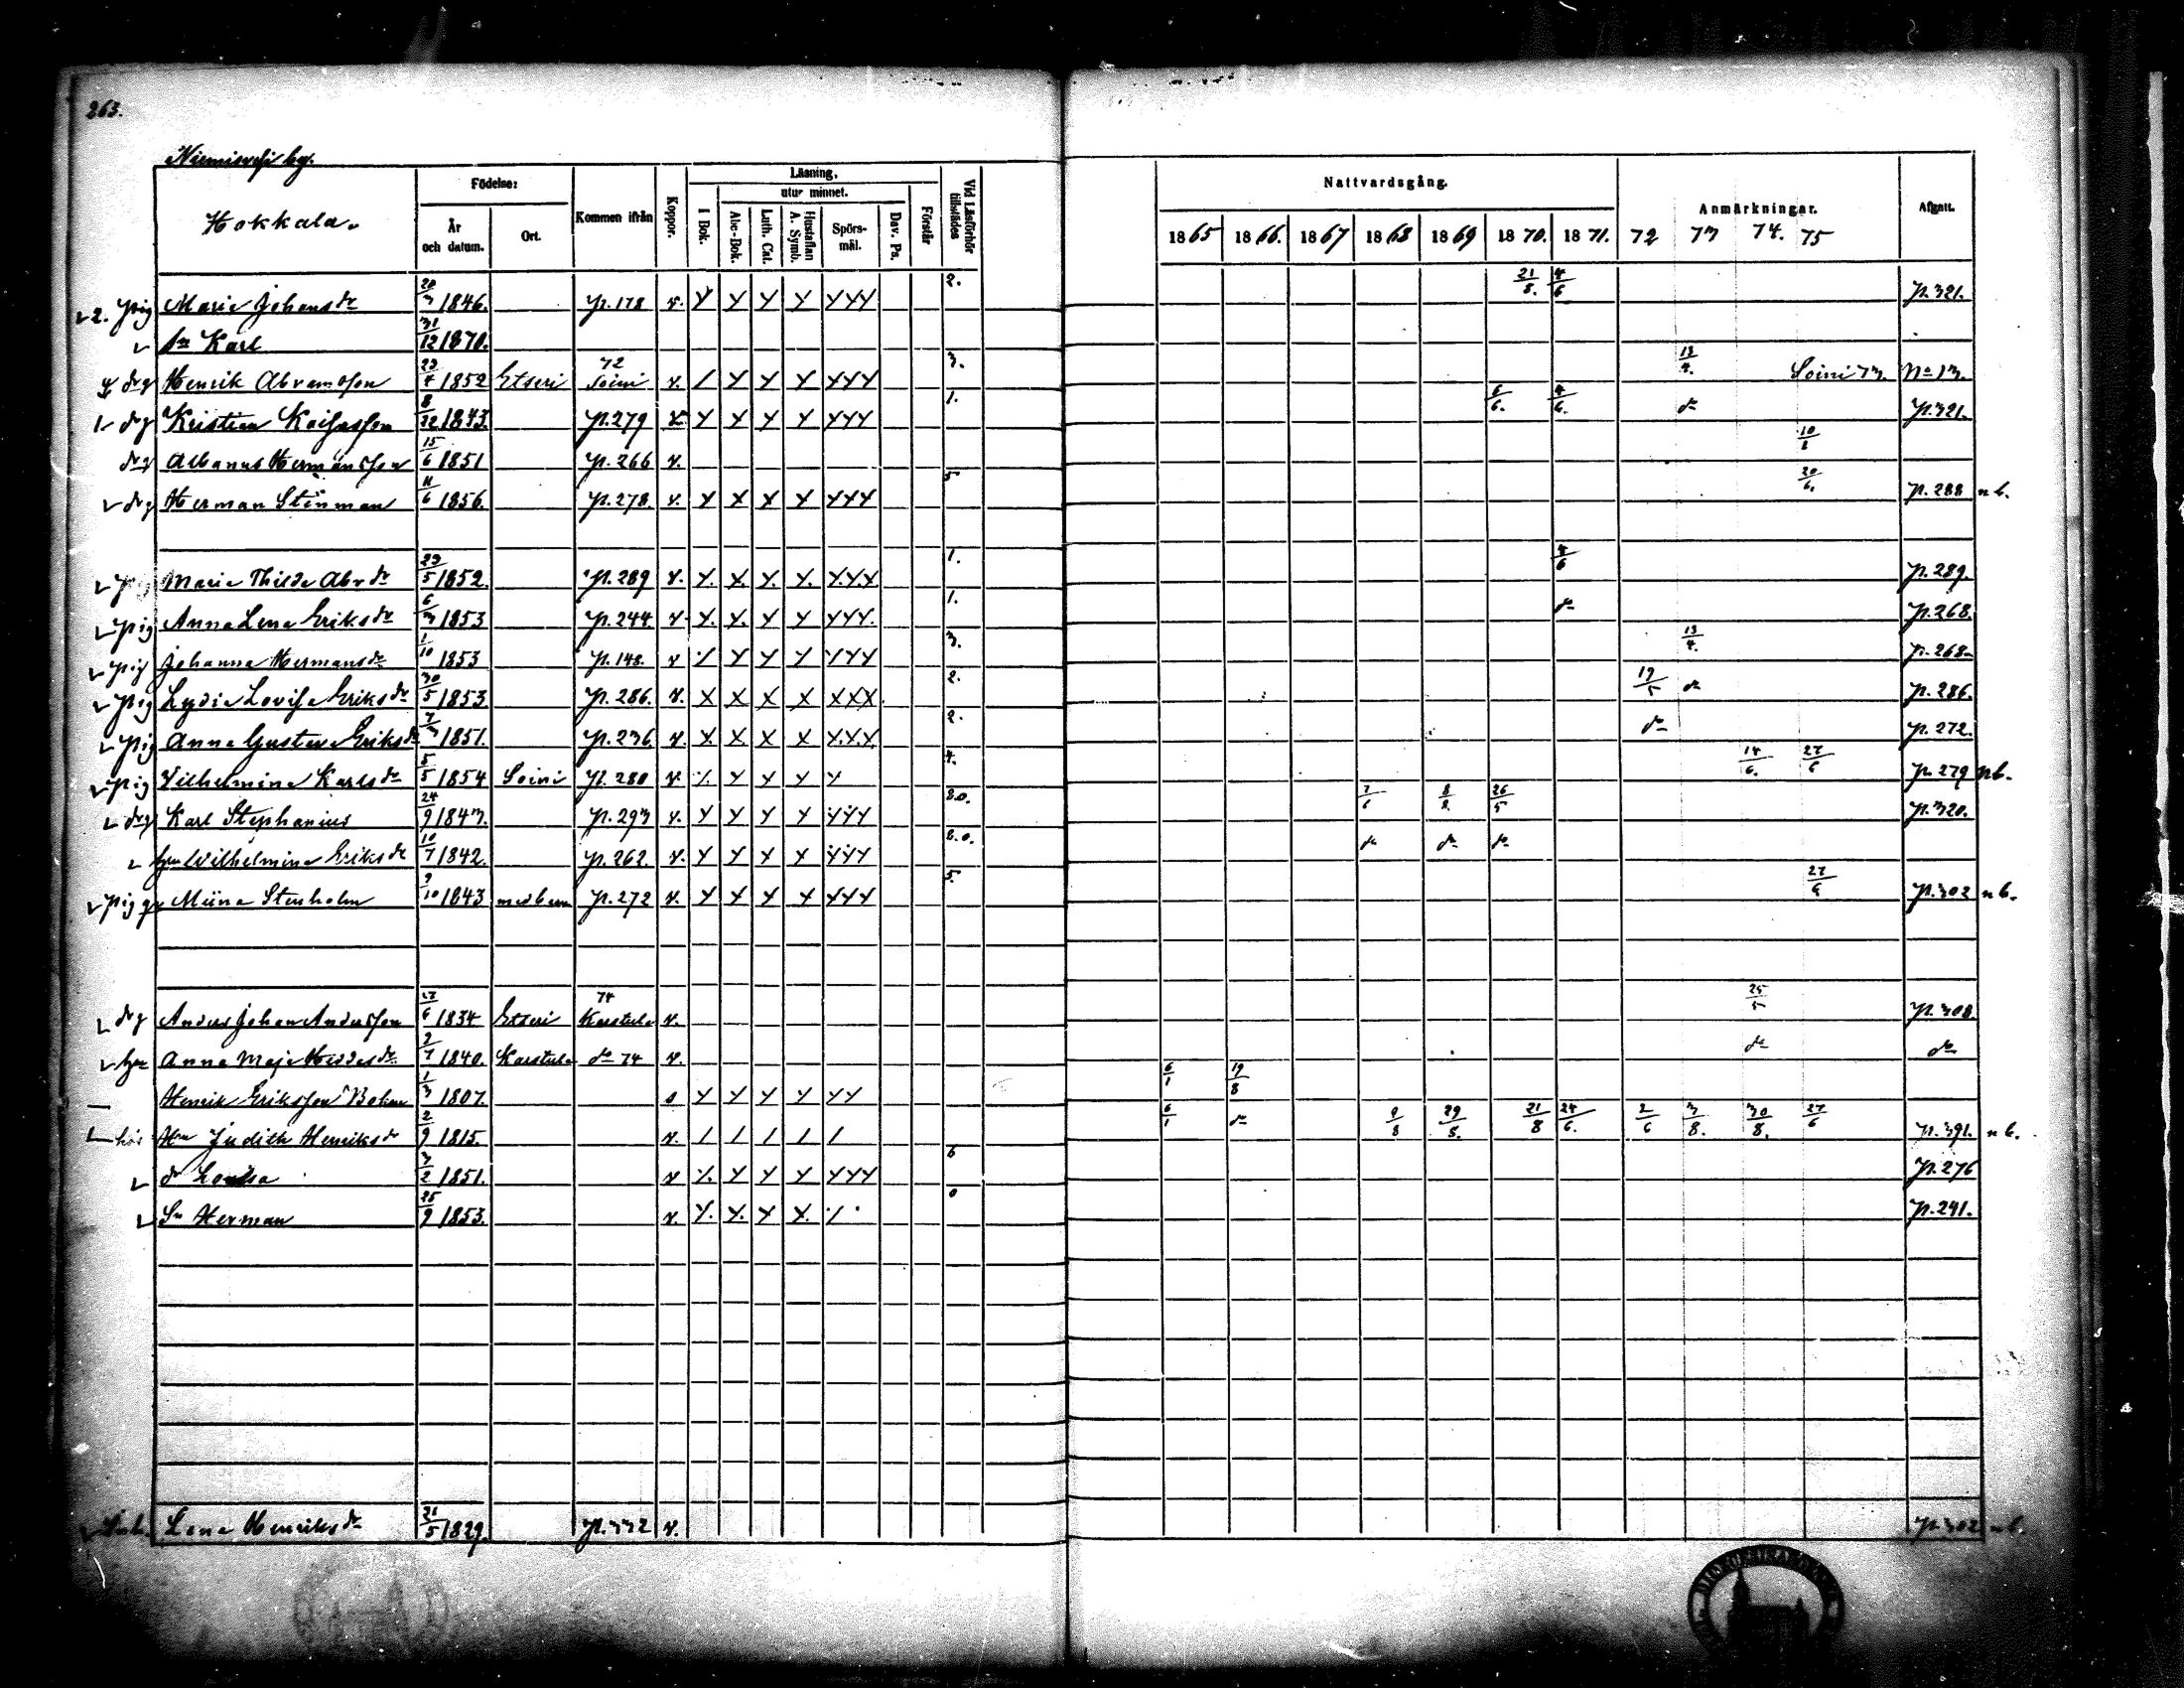 263.
Niemisvesi by.
Hokkala.
Födelse:
År och datum.
Ort.
Kommen ifrån
Koppor.
Läsning,
I Bok.
utur minnet.
Abc-Bok.
Luth. Cat.
Hustaflan A. Symb.
Spörs-mål.
Dav. Ps.
Förstår
Vid Läsförhör tillstädes
Nattvardsgång.
1865 1866. 1867 1868 1869 1870. 1871.
Anmärkningar.
72 73 74. 75
Afgått.
2. pig Maria Johansdr 20/3 1846. p. 178 v. 2. 21/8. 4/6 p. 321.
sn Karl 31/12 1870.
drg Henrik Abramsson 23/4 1852 Etseri 72 Soini v. 3. 13/4. Soini 73. No 13.
drg Kristian Kaisasson 8/12 1843. p. 279 1. 6/6. 4/6. do p. 321.
drg Albanus Hermansson 15/6 1851 p. 266 v. 10/8
drg Herman Stenman 11/6 1856. p. 278. v. 5 20/6. p. 288 nb.
pig Maria Thilda Abrdr 29/5 1852. p. 289 v. 1. 4/6 p. 289.
pig Anna Lena Eriksdr 6/3 1853 p. 244 v 1. do p. 268.
pig Johanna Hermansdr 1/10 1853 p. 148. v 3. 13/4. p. 268.
pig Lydia Lovisa Eriksdr 30/5 1853 p. 286. v. 2. 19/5 do p. 286.
pig Anna Gustava Eriksdr 7/3 1851. p. 236 v. 2. do p. 272.
pig Vilhelmina Karlsdr 5/5 1854 Soini p. 280 v. 4. 14/6. 27/6 p. 279 nb.
drg Karl Stephanius 24/9 1843. p. 293 v. 2.0. 7/6 8/8. 26/5 p. 320.
hu Wilhelmina Eriksdr 10/7 1842. p. 262. v. 2.0. do do do
pig Miina Stenholm 9/10 1843 p. 272 v. 5. 27/6 p. 302 nb.
drg Anders Johan Andersson 27/6 1834 Etseri 74 Karstula v. 25/5 p. 308
hu Anna Maja Heddesdr 2/7 1840. Karstula do 74 v. do do
Henrik Eriksson Bohm 1/3 1807. 6/1 19/8
Hu Judith Henriksdr 2/9 1815. v. 6/1 do 9/8 29/8. 21/8 24/6. 2/6 3/8. 30/8. 27/6 p. 391. nb.
dr Lovisa 3/2 1851. v 6 p. 276
Sn Herman 25/9 1853. v. 0 p. 241.
Lena Henriksdr 21/5 1829. p. 332 v. p. 302 nb.